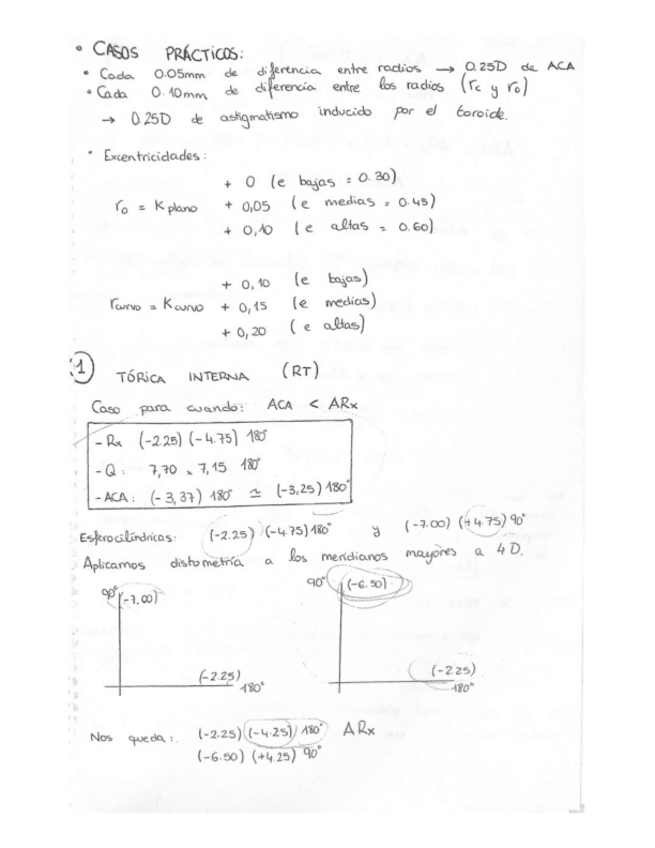 • CASOS PRÁCTICOS:
• Cada 0.05mm de diferencia entre radios → 0.25D de ACA
• Cada 0.10mm de diferencia entre los radios (rc y ro)
→ 0.25D de astigmatismo inducido por el toroide.
• Excentricidades:
+ 0 (e bajas = 0.30)
ro = K plano + 0,05 (e medias = 0.45)
+ 0,10 (e altas = 0.60)
+ 0,10 (e bajas)
rcurvo = K curvo + 0,15 (e medias)
+ 0,20 (e altas)
1 TÓRICA INTERNA (RT)
Caso para cuando: ACA < ARx
- Rx (-2.25) (-4.75) 180°
- Q: 7,70 x 7,15 180°
- ACA: (-3,37) 180° ≃ (-3,25) 180°
Esferocilíndricas: (-2.25) (-4.75) 180° y (-7.00) (+4.75) 90°
Aplicamos distometría a los meridianos mayores a 4D.
90° (-7.00) 90° (-6.50)
(-2.25) 180° (-2.25) 180°
Nos queda: (-2.25) (-4.25) 180° ARx
(-6.50) (+4.25) 90°